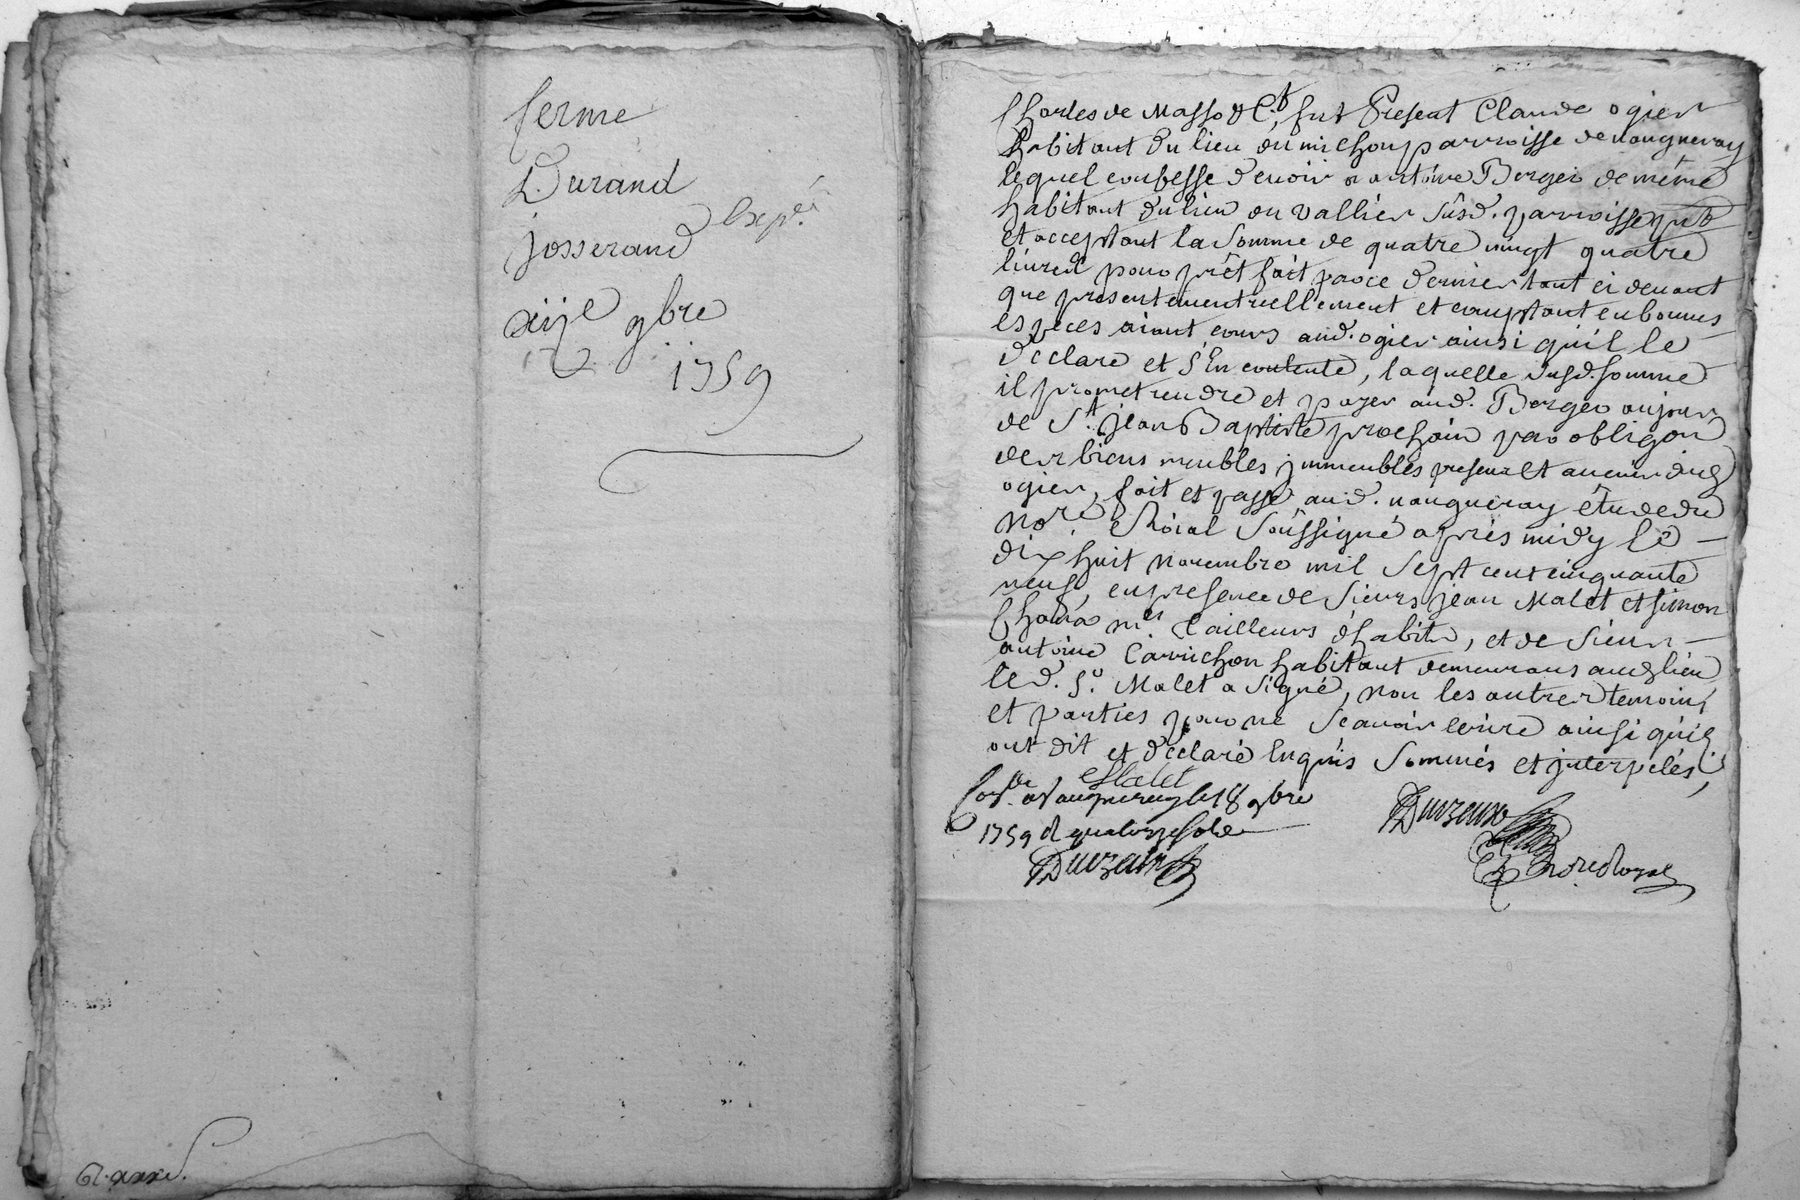 ferme
Durand
Expée
josserand
xije 9bre
1759
Charles de Masso &c.t fut Present Claude ogier
habitant du lieu du michon parroisse de vaugneray
lequel confesse devoir a antoine Berger de même
habitant du lieu du vallier susd. parroisse prt
et acceptant la somme de quatre vingt quatre
livres pour prêt fait par ce dernier tant ci devant
que presentement reellement et comptant en bonnes
espèces aiant cours aud. ogier ainsi qu'il le
déclare et s'En contente, laquelle susd. somme
il promet rendre et payer aud. Berger au jour
de St. jean Baptiste prochain par obligaôn
de ses biens meubles jmmeubles presens et avenir dud
ogier, fait et passé aud. vaugneray étude du
Nore. Roial soussigné après midy le
dix huit novembre mil sept cent cinquante
neuf, en presence de sieurs jean Malet et simon
mes. tailleurs d'habits, et de sieur
antoine Carrichon habitant demeurans aud lieu
led. sr. Malet a signé, non les autres temoins
et parties pour ne scavoir écrire ainsi qu'ils
ont dit et déclaré Enquis sommés et jnterpelés,
Malet
a vaugneray le 18 9bre
1759 R quatorze sols
Duvzeure
nore Royal